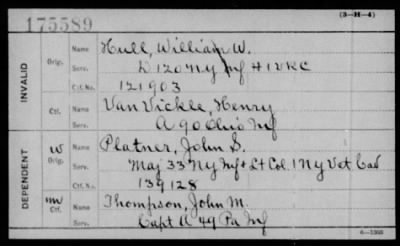 (3-H-4)
175589
INVALID
Orig. Name Hull, William W.
Serv. D 120 N.Y. Inf H 1 V.R.C.
Ctf. No. 121903
Ctf. Name Van Vickle, Henry
Serv. A 90 Ohio Inf
DEPENDENT
W Orig. Name Platner, John S.
Serv. Maj 33 N.Y. Inf + Lt Col 1 N.Y. Vet Cav
Ctf. No. 139128
Ctf. Name Thompson, John M.
Serv. Capt A 44 Pa Inf